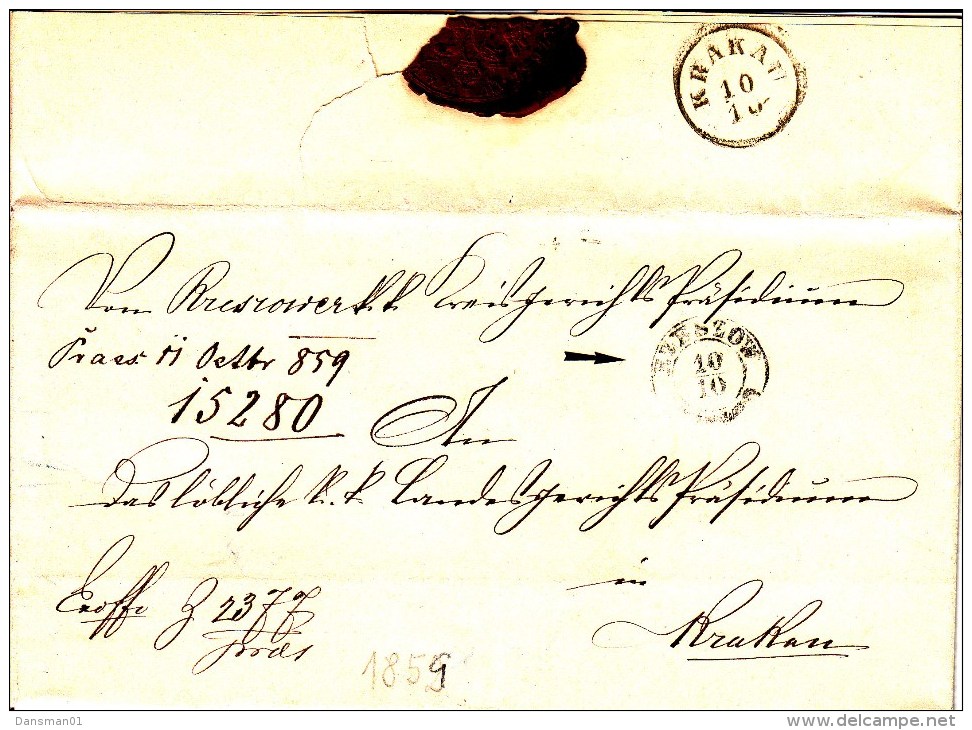 KRAKAU
10
10
Von Rzeszower k.k. Kreisgerichts Präsidium
Praes 11 Octbr 859
RZESZOW
10
10
15280
An
Das löbliche k.k. Landesgerichts Präsidium
in
Exoffo Z 2377
praes
Krakau
1859
Dansman01
delcampe.net